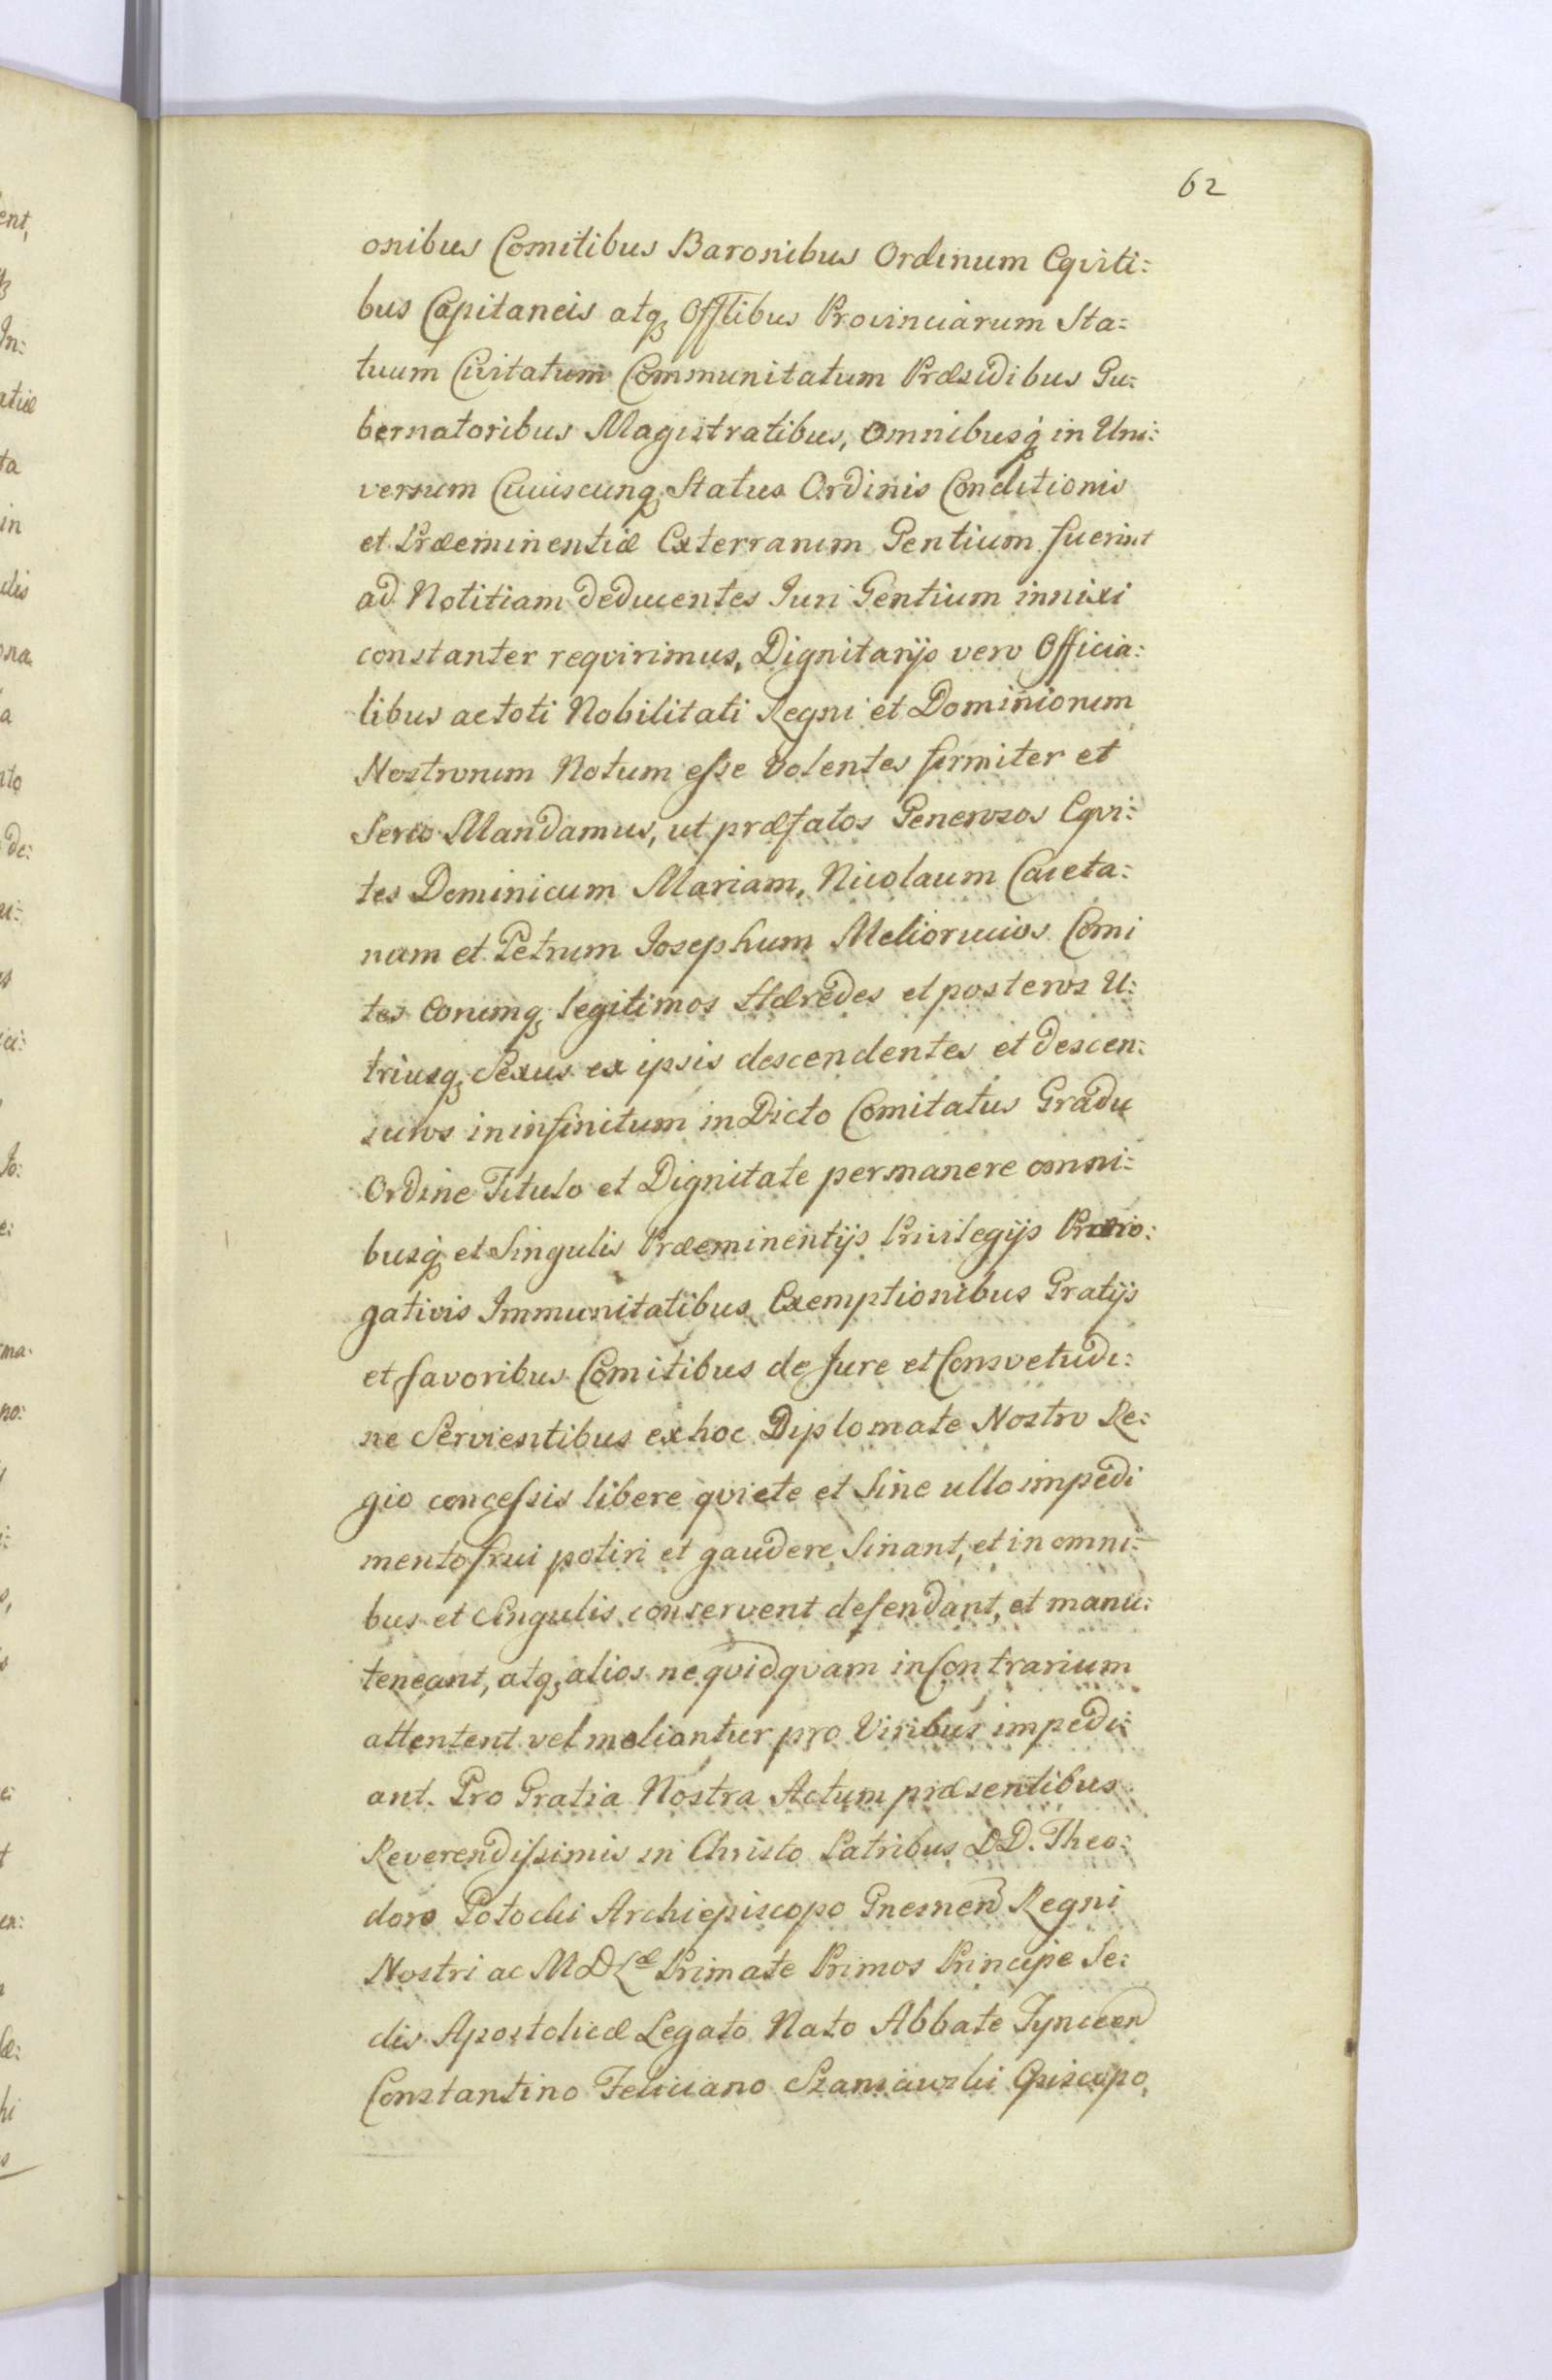 62
onibus Comitibus Baronibus Ordinum Eqviti:
bus Capitaneis atq; Offlibus Provinciarum Sta:
tuum Civitatum Communitatum Præsidibus Gu:
bernatoribus Magistratibus, omnibusq; in Uni:
versum Cuiuscunq; Status Ordinis Conditionis
et Præeminentiæ Exterrarum Gentium fuerint
ad Notitiam deducentes Juri Gentium innixi
constanter reqvirimus, Dignitarijs vero Officia:
libus ac toti Nobilitati Regni et Dominiorum
Nostrorum Notum esse volentes firmiter et
Serio Mandamus, ut præfatos Generosos Eqvi:
tes Dominicum Mariam, Nicolaum Caieta:
num et Petrum Josephum Meliorucios Comi
tes Eorumq; legitimos Hæredes et posteros U:
triusq; Sexus ex ipsis descendentes et descen:
suros in infinitum in Dicto Comitatus Gradu
Ordine Titulo et Dignitate permanere omni:
busq; et Singulis Præeminentijs Privilegijs Præro:
gativis Immunitatibus Exemptionibus Gratijs
et favoribus Comitibus de Jure et Consvetudi:
ne Servientibus ex hoc Diplomate Nostro Re:
gio concessis libere qviete et Sine ullo impedi
mento frui potiri et gaudere Sinant, et in omni:
bus et Singulis conservent defendant, et manu:
teneant, atq; alios ne qvidqvam in Contrarium
attentent vel moliantur pro Viribus impedi:
ant. Pro Gratia Nostra Actum præsentibus
Reverendissimis in Christo Patribus DD. Theo:
doro Potocki Archiepiscopo Gnesnen Regni
Nostri ac M D Læ Primate Primos Principe Se:
dis Apostolicæ Legato Nato Abbate Tyncen
Constantino Feliciano Szaniawski Episcopo,